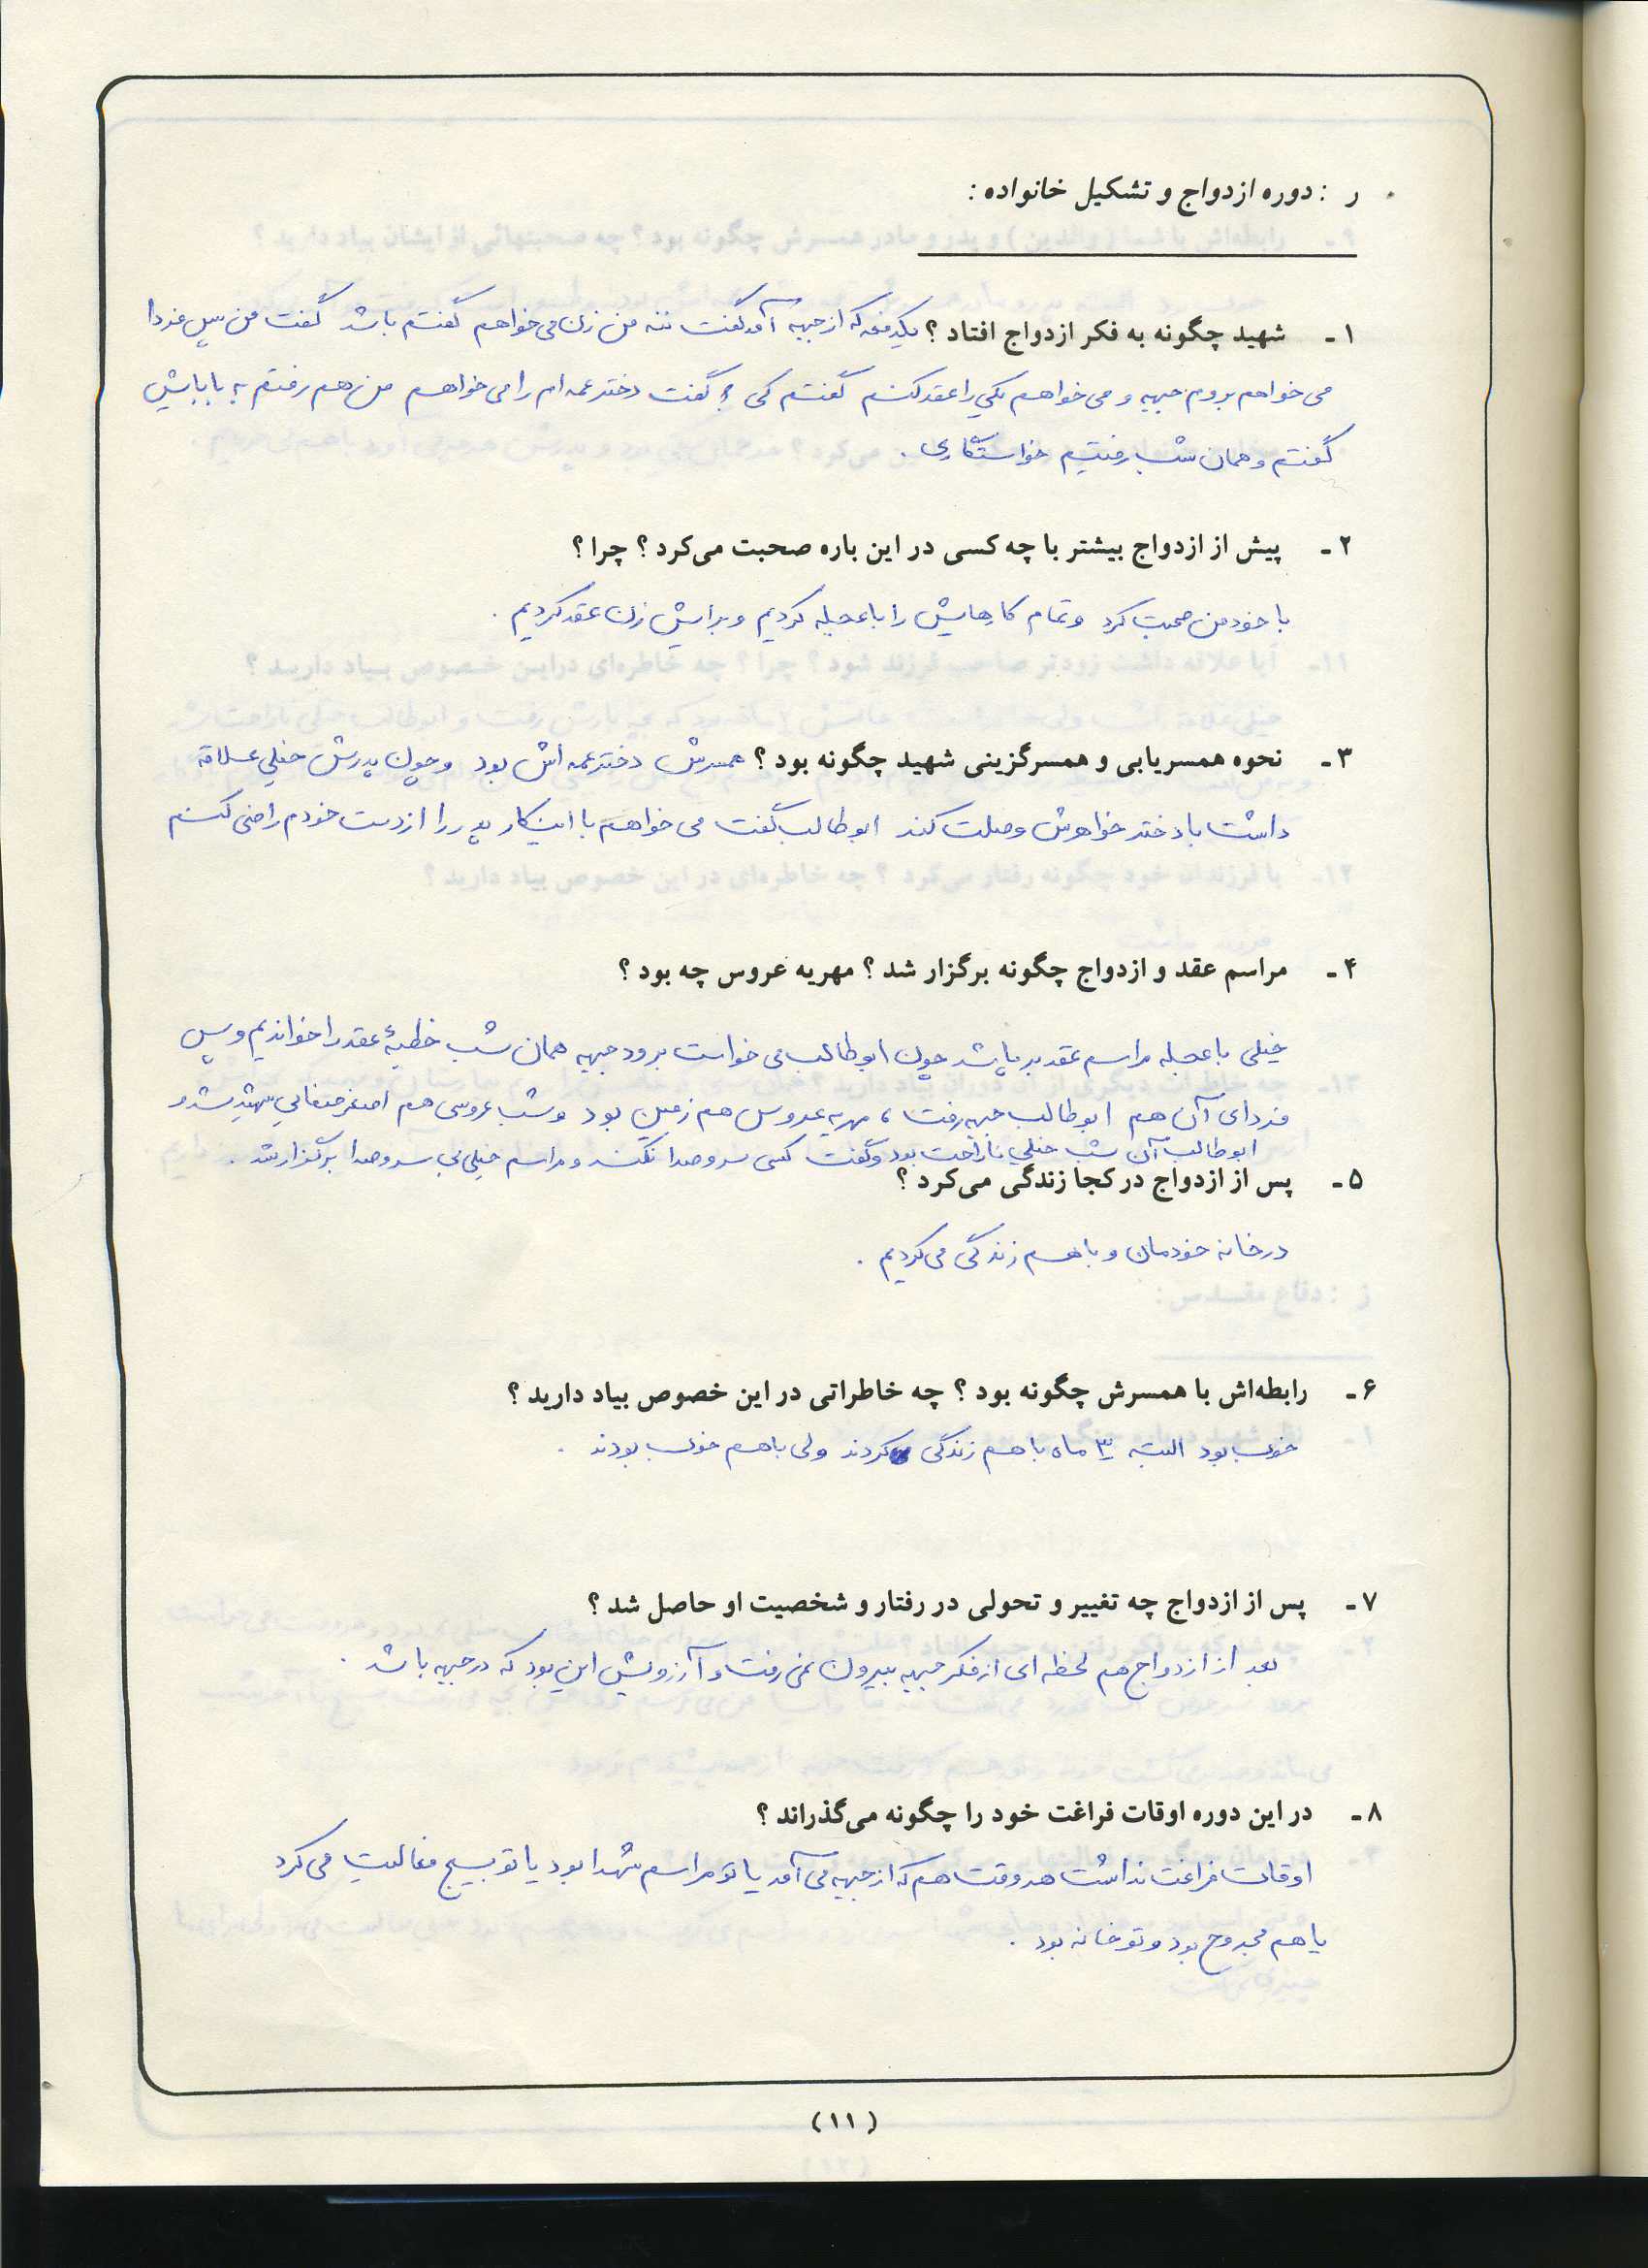 ر : دوره ازدواج و تشکیل خانواده :
۱ - شهید چگونه به فکر ازدواج افتاد ؟ یکدفعه که از جبهه آمد گفت ننه من زن می خواهم گفتم باشد گفت من پس فردا
می خواهم بروم جبهه و می خواهم یکی را عقد کنم گفتم کی ؟ گفت دختر عمه ام را می خواهم من هم رفتم به باباش
گفتم و همان شب رفتیم خواستگاری .
۲ - پیش از ازدواج بیشتر با چه کسی در این باره صحبت می‌کرد ؟ چرا ؟
با خود من صحبت کرد و تمام کارهایش را با عجله کردیم و برایش زن عقد کردیم .
۳ - نحوه همسریابی و همسرگزینی شهید چگونه بود ؟ همسرش دختر عمه اش بود و چون پدرش خیلی علاقه
داشت با دختر خواهرش وصلت کند ابوطالب گفت می خواهم با اینکار پدر را از دست خودم راضی کنم
۴ - مراسم عقد و ازدواج چگونه برگزار شد ؟ مهریه عروس چه بود ؟
خیلی با عجله مراسم عقد برپا شد چون ابوطالب می خواست برود جبهه همان شب خطبهٔ عقد را خواندیم و پس
فردای آن هم ابوطالب جبهه رفت ، مهریه عروس هم زمین بود و شب عروسی هم اصغر صفایی شهید شد و
ابوطالب آن شب خیلی ناراحت بود و گفت کسی سر و صدا نکند و مراسم خیلی بی سر و صدا برگزار شد .
۵ - پس از ازدواج در کجا زندگی می‌کرد ؟
در خانه خودمان و با هم زندگی می کردیم .
۶ - رابطه‌اش با همسرش چگونه بود ؟ چه خاطراتی در این خصوص بیاد دارید ؟
خوب بود البته ۳ ماه با هم زندگی کردند ولی با هم خوب بودند .
۷ - پس از ازدواج چه تغییر و تحولی در رفتار و شخصیت او حاصل شد ؟
بعد از ازدواج هم لحظه ای از فکر جبهه بیرون نمی رفت و آرزویش این بود که در جبهه باشد .
۸ - در این دوره اوقات فراغت خود را چگونه می‌گذراند ؟
اوقات فراغت نداشت هر وقت هم که از جبهه می آمد یا تو مراسم شهدا بود یا تو بسیج فعالیت می کرد
یا هم مجروح بود و تو خانه بود .
(۱۱)